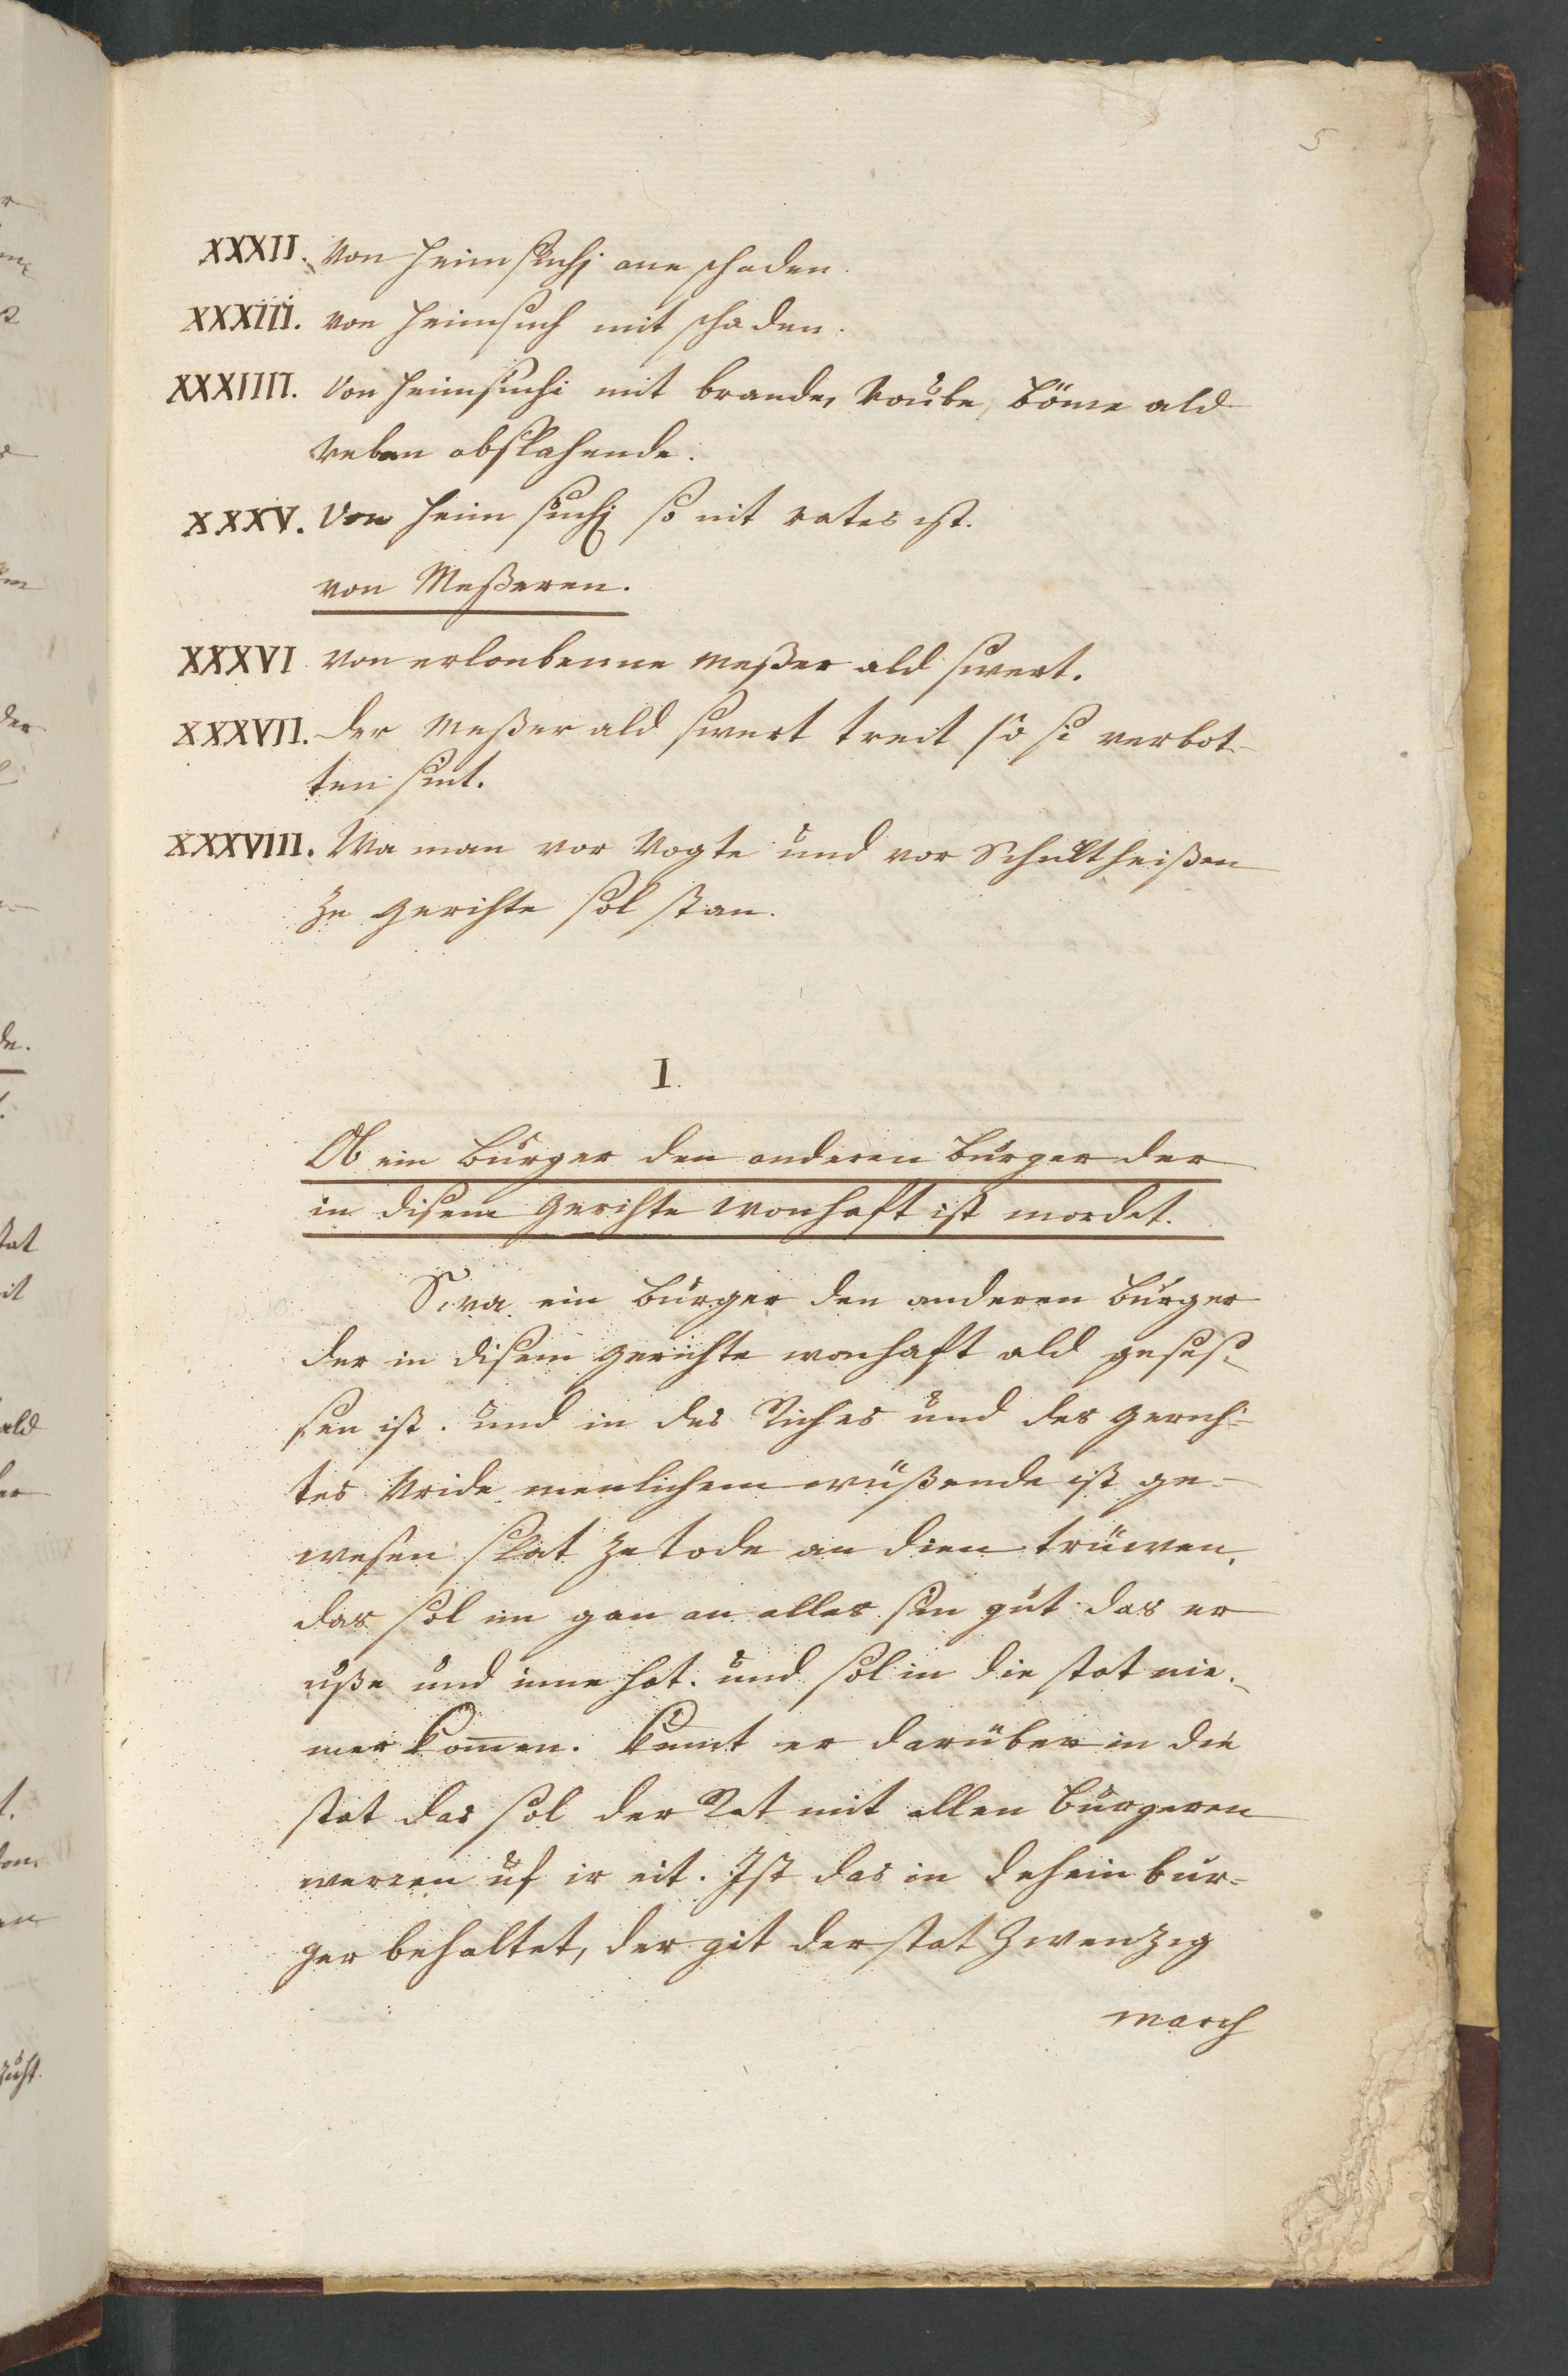 5
XXXII. Von heimsuchi ane schaden.
XXXIII. von heimsuch mit schaden.
XXXIIII. Von heimsuchi mit brande, Roube, böme ald
reben abslahende.
XXXV. Von heim suchi so nit rates ist.
von Meßeren.
XXXVI von erloubenne meßer ald swert.
XXXVII. der meßer ald swert treit so si verbot-
ten sint.
XXXVIII. Wa man vor Vogte und vor Schultheißen
ze gerichte sol stan.
I.
Ob ein burger den anderen burger der
in disem gerichte wonhaft ist mordet.
Swa ein burger den anderen burger
der in disem gerichte wonhaft ald geses-
sen ist. und in des Riches und des gerich-
tes Vride menlichem wüßende ist ge-
wesen slat ze tode an dien trüwen,
das sol im gan an alles sin gut das er
uße und inne hat. und sol in die stat nie-
mer komen. kumt er darüber in die
stat das sol der Rat mit allen burgeren
werren uf ir eit. Ist das in dehein bur-
ger behaltet, der git der stat zwenzig
march